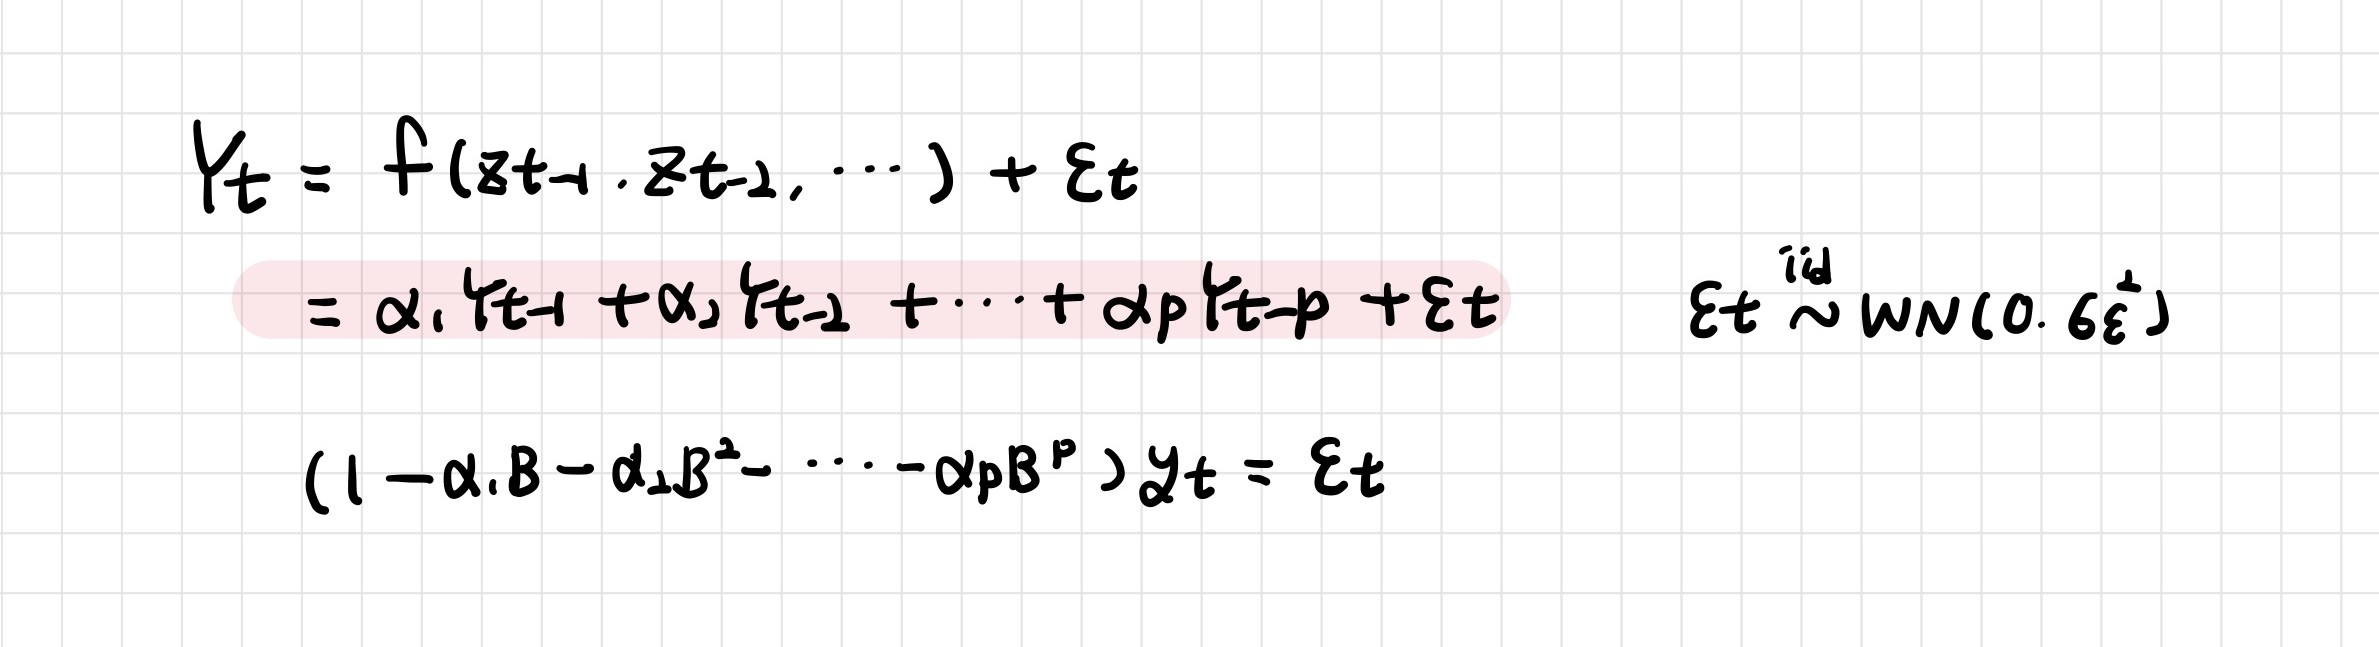 Yt = f(zt-1, zt-2, ...) + εt
= α1Yt-1 + α2Yt-2 + ... + αpYt-p + εt    εt iid ~ WN(0, σε²)
(1 - α1B - α2B² - ... - αpB^p)yt = εt